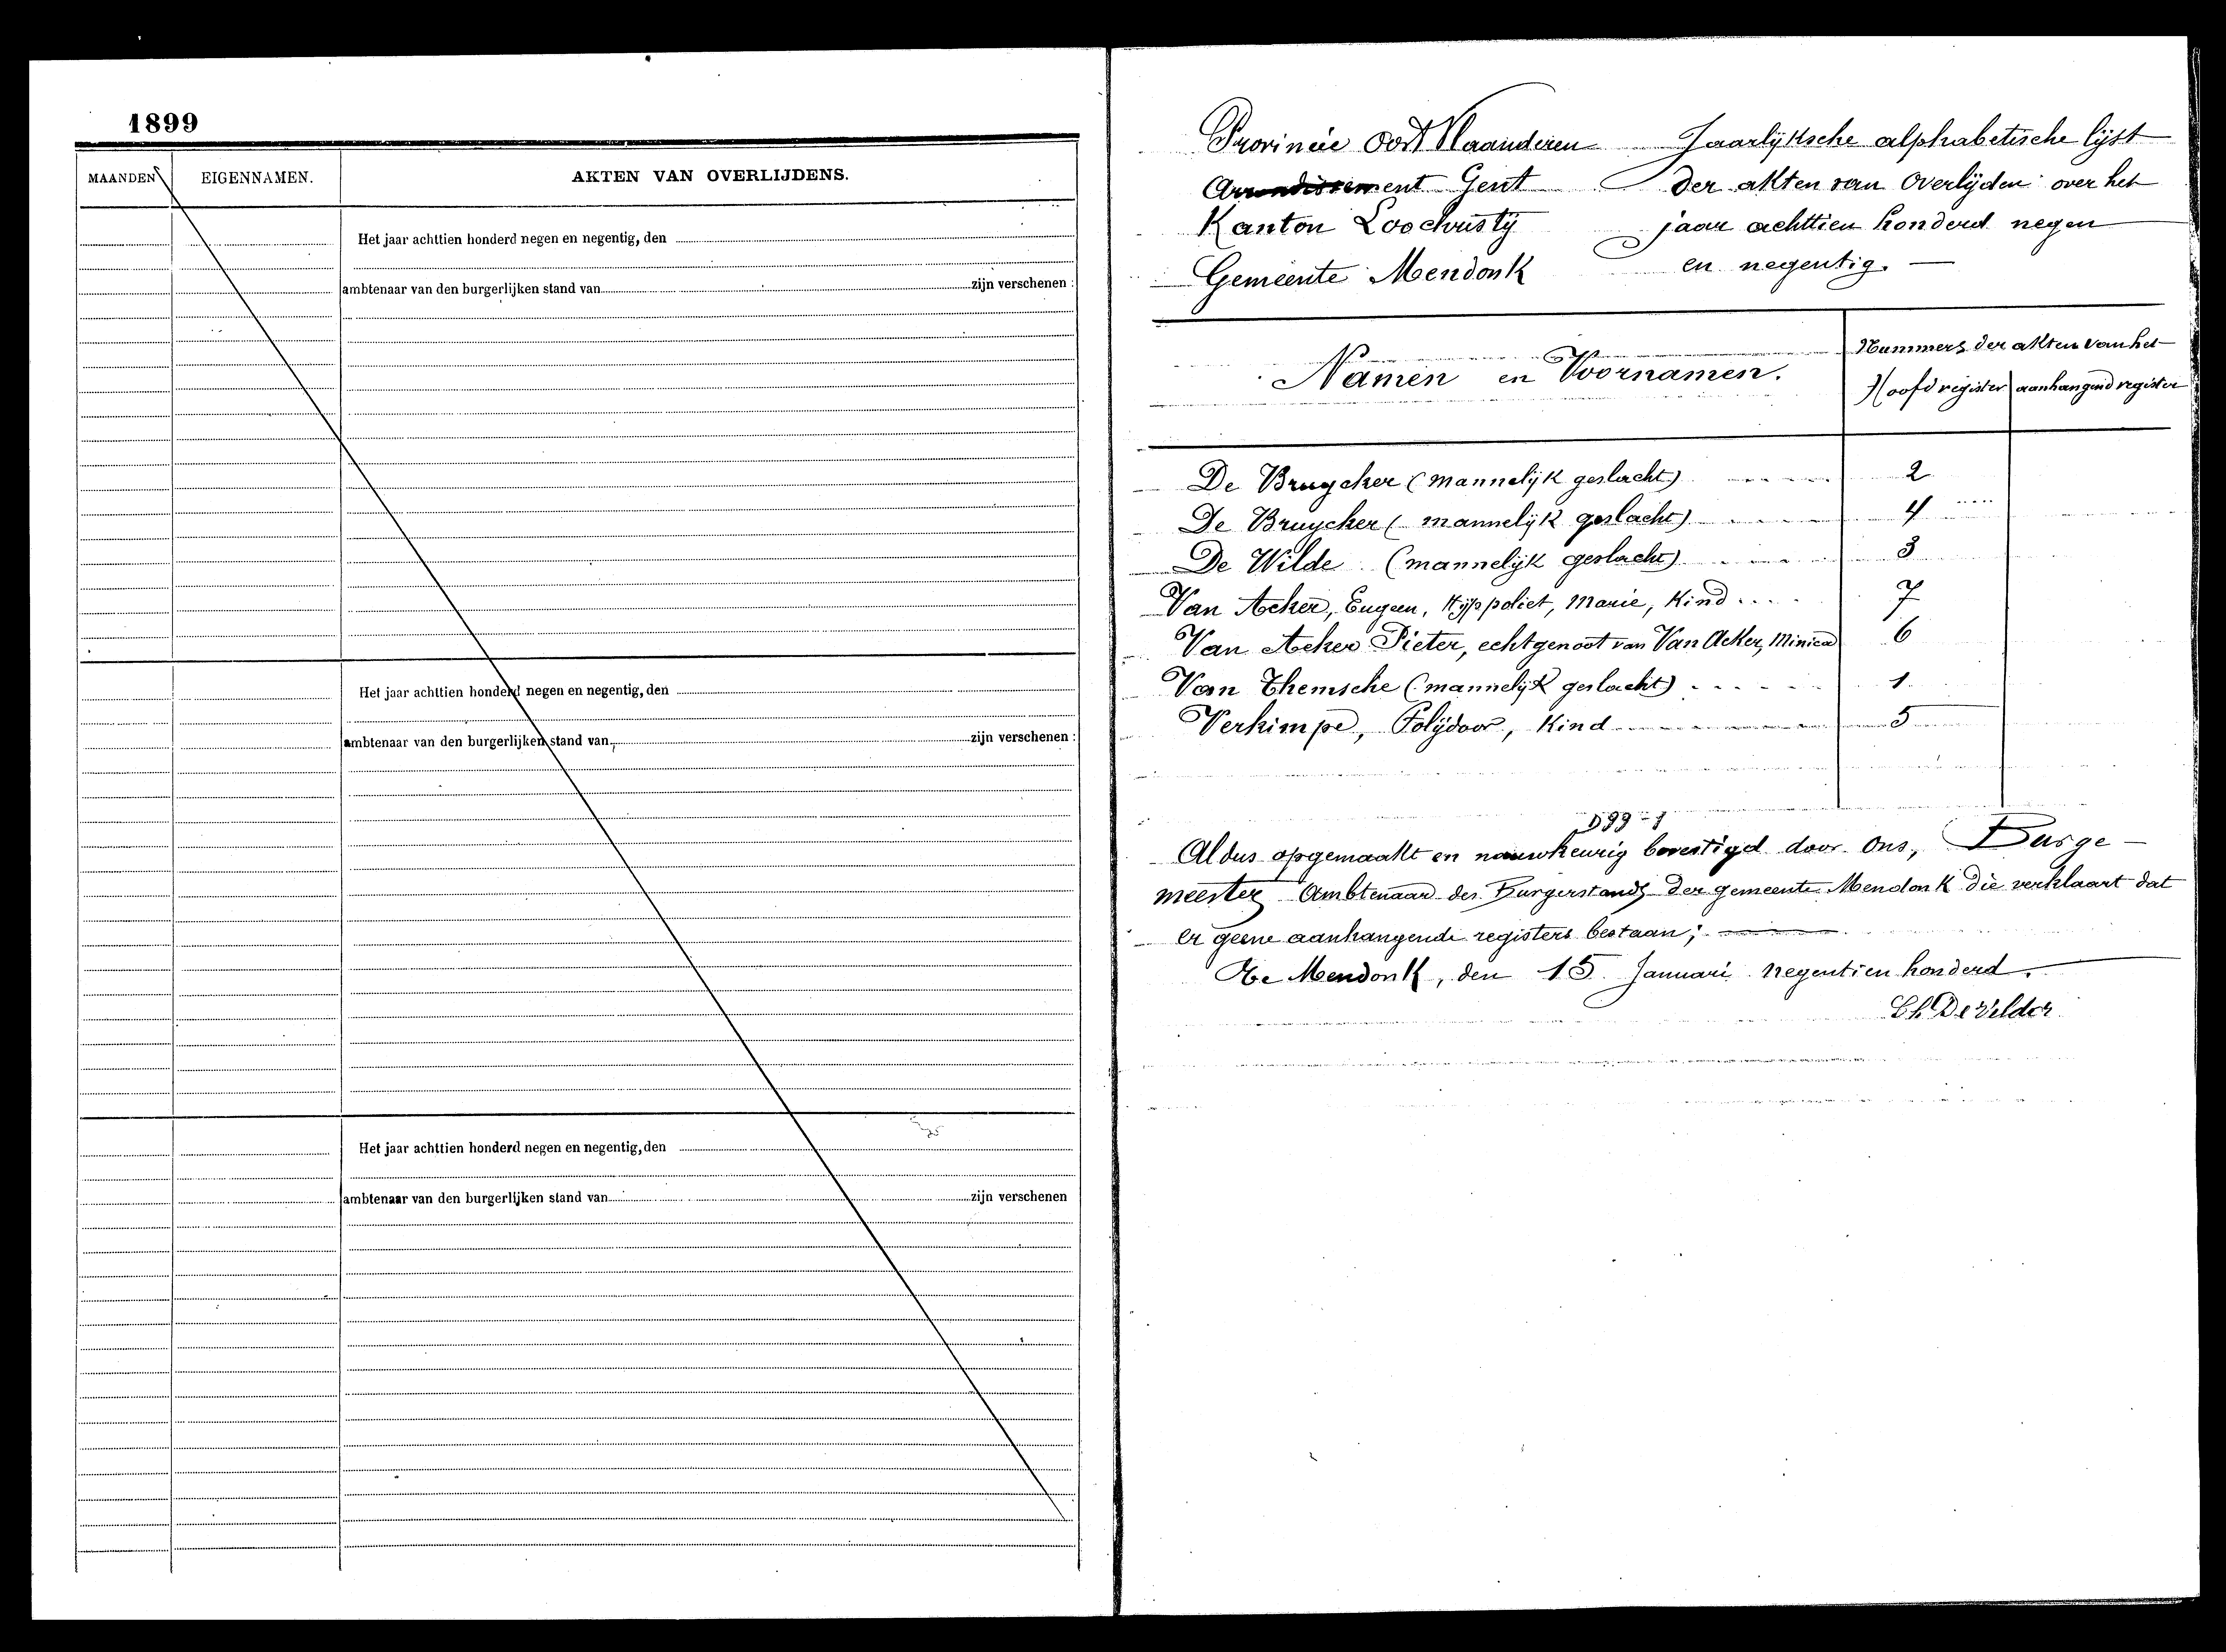 1899
MAANDEN EIGENNAMEN. AKTEN VAN OVERLIJDENS.
Het jaar achttien honderd negen en negentig, den
ambtenaar van den burgerlijken stand van zijn verschenen :
Het jaar achttien honderd negen en negentig, den
ambtenaar van den burgerlijken stand van zijn verschenen :
Het jaar achttien honderd negen en negentig, den
ambtenaar van den burgerlijken stand van zijn verschenen
Provincie Oost Vlaanderen
Arrondissement Gent
Kanton Loochristy
Gemeente Mendonk
Jaarlijksche alphabetische lijst
der akten van Overlijden over het
jaar achttien honderd negen
en negentig. —
Namen en Voornamen.
Nummers der akten van het
Hoofdregister aanhangend register
De Bruycker (mannelijk geslacht) 2
De Bruycker (mannelijk geslacht) 4
De Wilde (mannelijk geslacht) 3
Van Acker, Eugeen, Hyppoliet, Marie, Kind 7
Van Acker Pieter, echtgenoot van Van Acker, 6
Van Themsche (mannelijk geslacht) 1
Verkimpe, Polijdoor, Kind 5
Aldus opgemaakt en nauwkeurig bevestigd door Ons, Burge-
meester Ambtenaar des Burgerstands der gemeente Mendonk die verklaart dat
er geene aanhangende registers bestaan;
Te Mendonk, den 15 Januari negentien honderd.
Ch De Velder